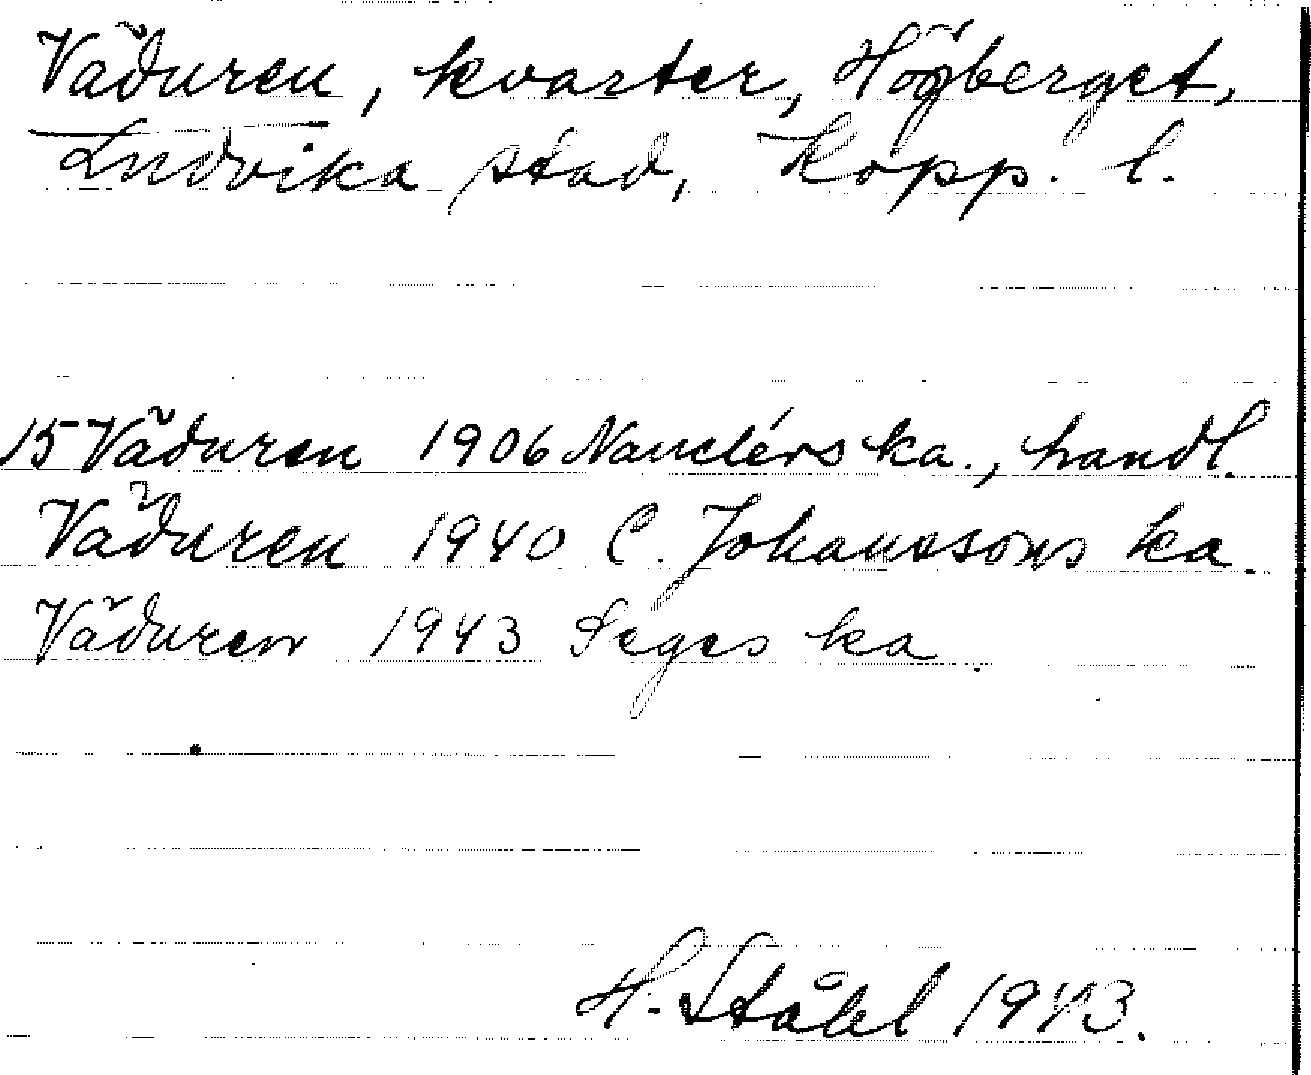 Väduren, kvarter, Högberget,
Ludvika stad, Kopp. l.
15 Väduren 1906 Nauclérs ka., handl.
Väduren 1940 C. Johanssons ka.
Väduren 1943 Seges ka
H. Ståhl 1943.